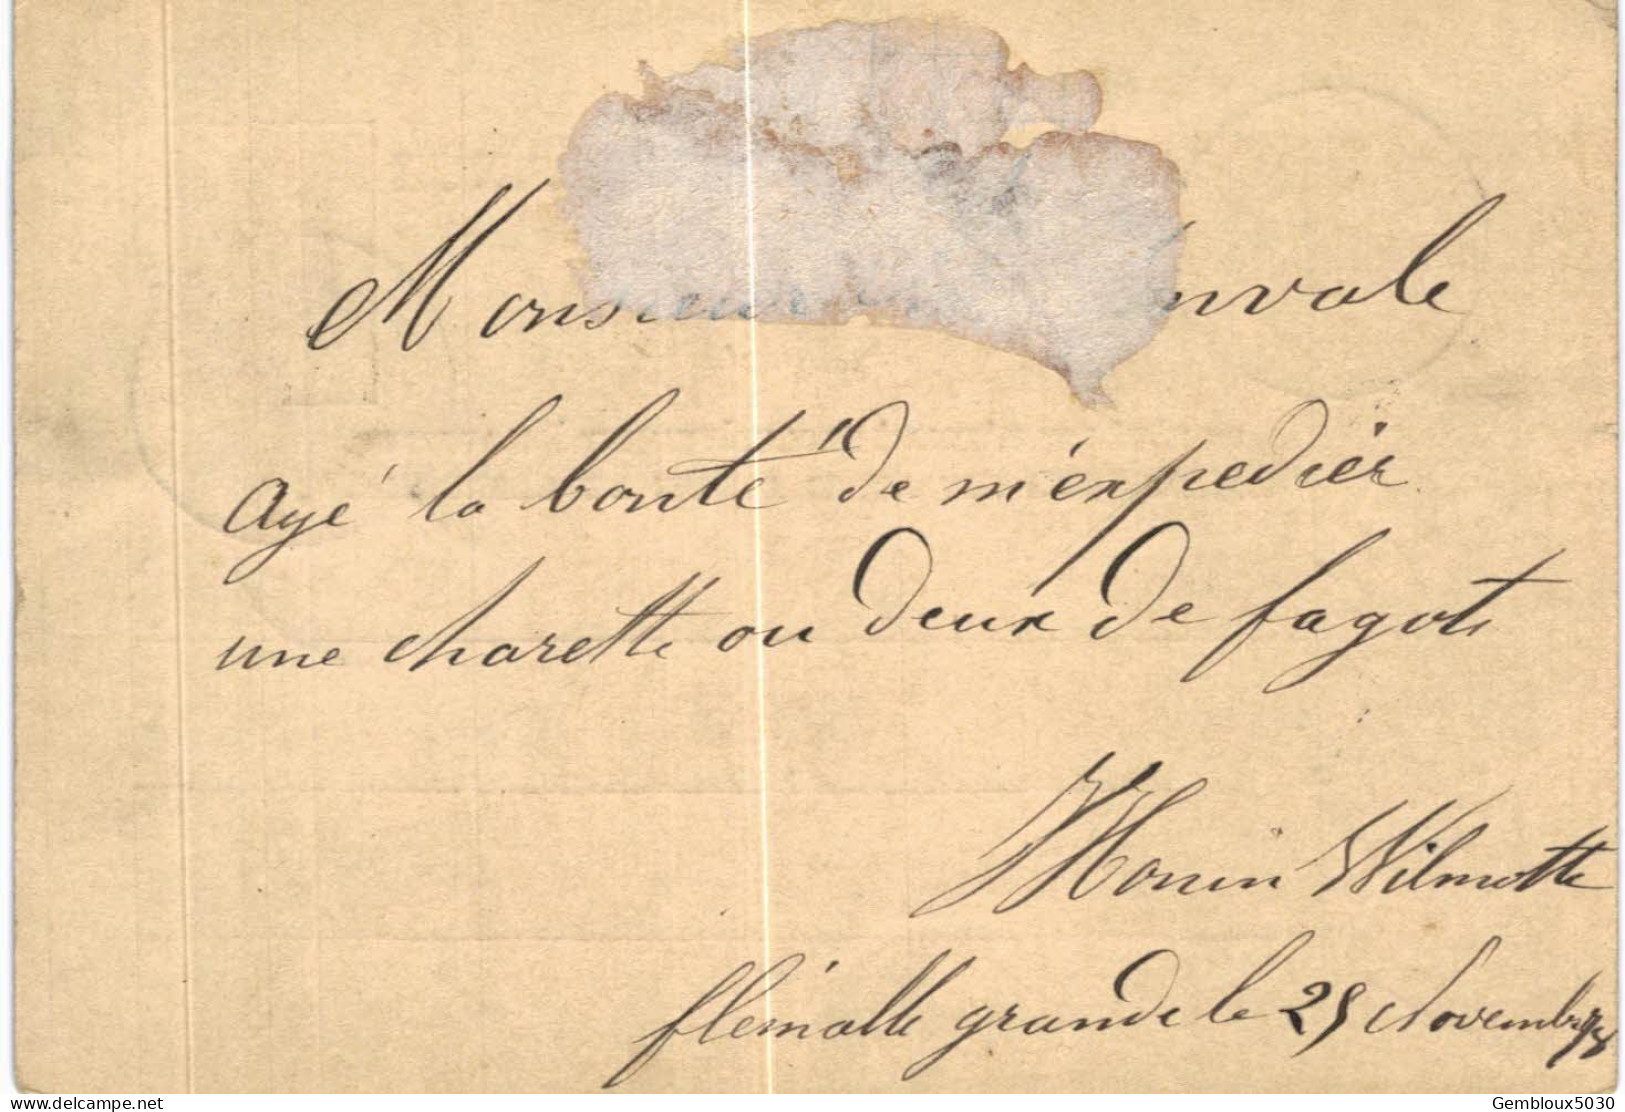 Monsieur nvale
Ayé la bonté de m'éxpedier
une charette ou deux de fagots
Monin Wilmotte
flémalle grande le 25 Novembre 78
Gembloux5030